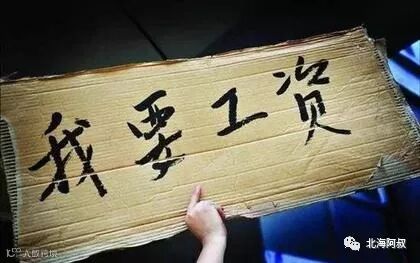 我要工资
北海阿叔